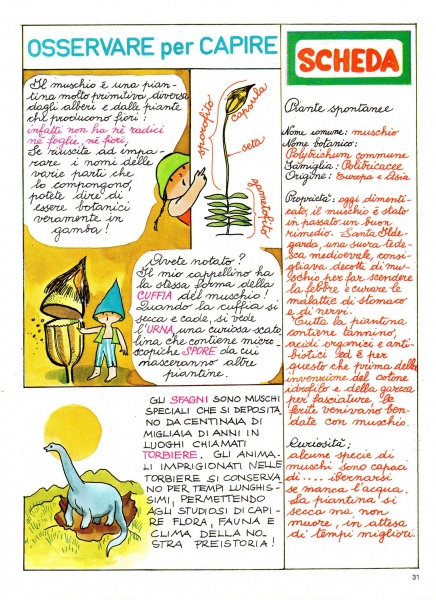 OSSERVARE per CAPIRE
Il muschio è una pian-
tina molto primitiva, diversa
dagli alberi e dalle piante
che producono fiori:
infatti non ha né radici
né foglie, né fiori,
Se riuscite ad impa-
rare i nomi delle
varie parti che
lo compongono,
potete dire di
essere botanici
veramente in
gamba!
sporofito
capsula
seta
gametofito
Avete notato?
Il mio cappellino ha
la stessa forma della
CUFFIA del muschio!
Quando la cuffia si
secca e cade, si vede
l'URNA, una curiosa scato
lina che contiene micro-
scopiche SPORE da cui
nasceranno altre
piantine.
GLI SFAGNI SONO MUSCHI
SPECIALI CHE SI DEPOSITA,
NO DA CENTINAIA DI
MIGLIAIA DI ANNI IN
LUOGHI CHIAMATI
TORBIERE. GLI ANIMA,
LI IMPRIGIONATI NELLE
TORBIERE SI CONSERVA
NO PER TEMPI LUNGHIS-
SIMI, PERMETTENDO
AGLI STUDIOSI DI CAPI-
RE FLORA, FAUNA E
CLIMA DELLA NO_
STRA PREISTORIA!
SCHEDA
Piante spontanee
Nome comune: muschio
Nome botanico:
Polytrichum commune
Famiglia: Politricacee
Origine: Europa e Asia
Proprietà: oggi dimenti-
cato, il muschio è stato
in passato un buon
rimedio. Santa Ilde
garda, una suora tede-
sca medioevale, consi-
gliava decotti di mu-
schio per far scendere
la febbre e curare le
malattie di stomaco
e di nervi.
Tutta la piantina
contiene tannino,
acidi organici e anti-
biotici ed è per
questo che prima della
invenzione del cotone
idrofilo e della garza
per fasciature, le
ferite venivano ben-
date con muschio.
Curiosità:
alcune specie di
muschi sono capaci
di.... ibernarsi
se manca l'acqua.
La piantina si
secca ma non
muore, in attesa
di tempi migliori.
31